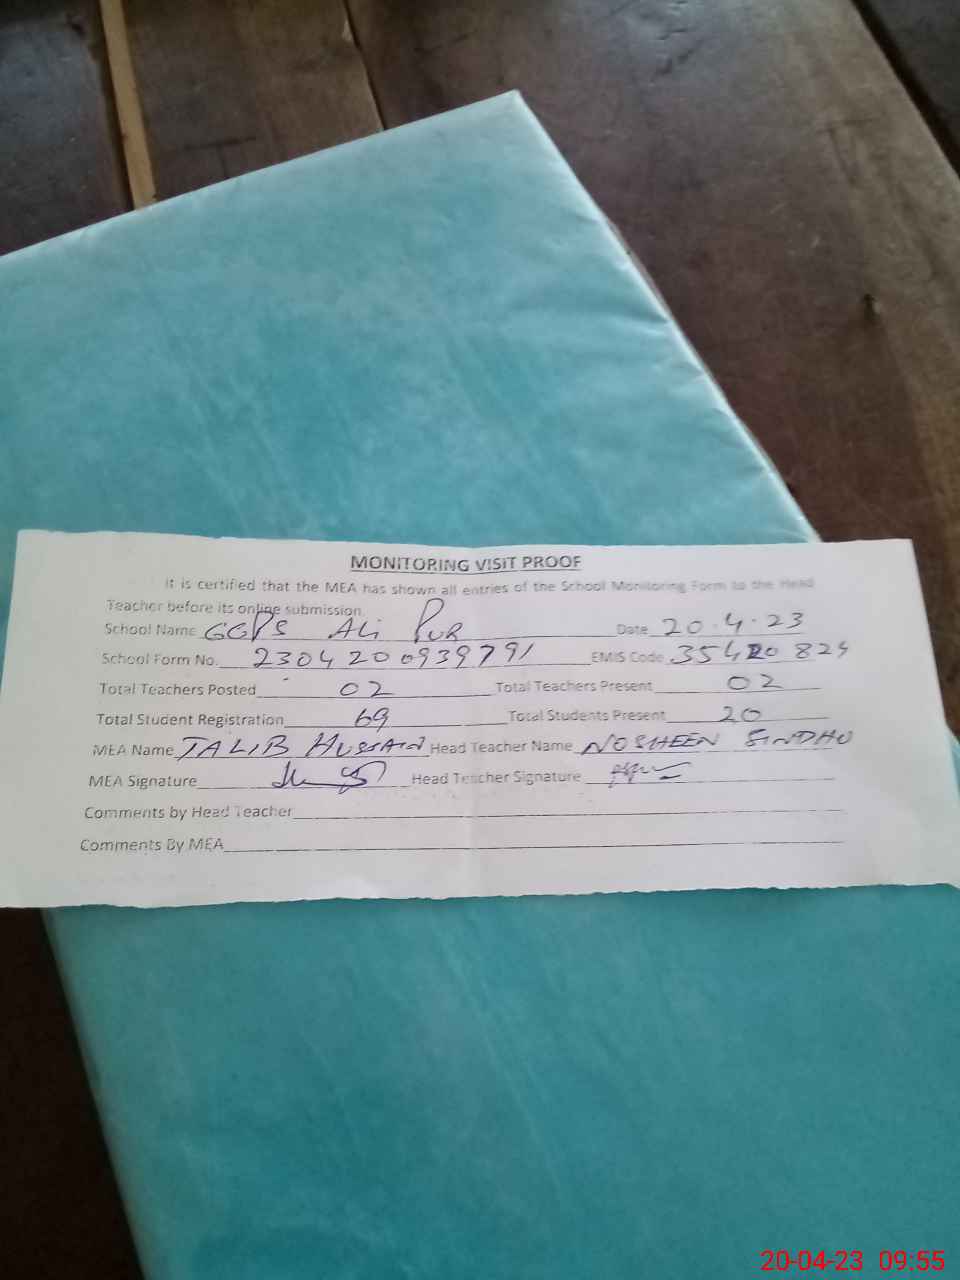 MONITORING VISIT PROOF
It is certified that the MEA has shown all entries of the School Monitoring Form to the Head
Teacher before its online submission.
School Name GGPS Ali Pur Date 20.4.23
School Form No. 2304200939791 EMIS Code 35420824
Total Teachers Posted 02 Total Teachers Present 02
Total Student Registration 69 Total Students Present 20
MEA Name TALIB HUSSAIN Head Teacher Name NOSHEEN SINDHU
MEA Signature Head Teacher Signature
Comments by Head Teacher
Comments By MEA
20-04-23 09:55